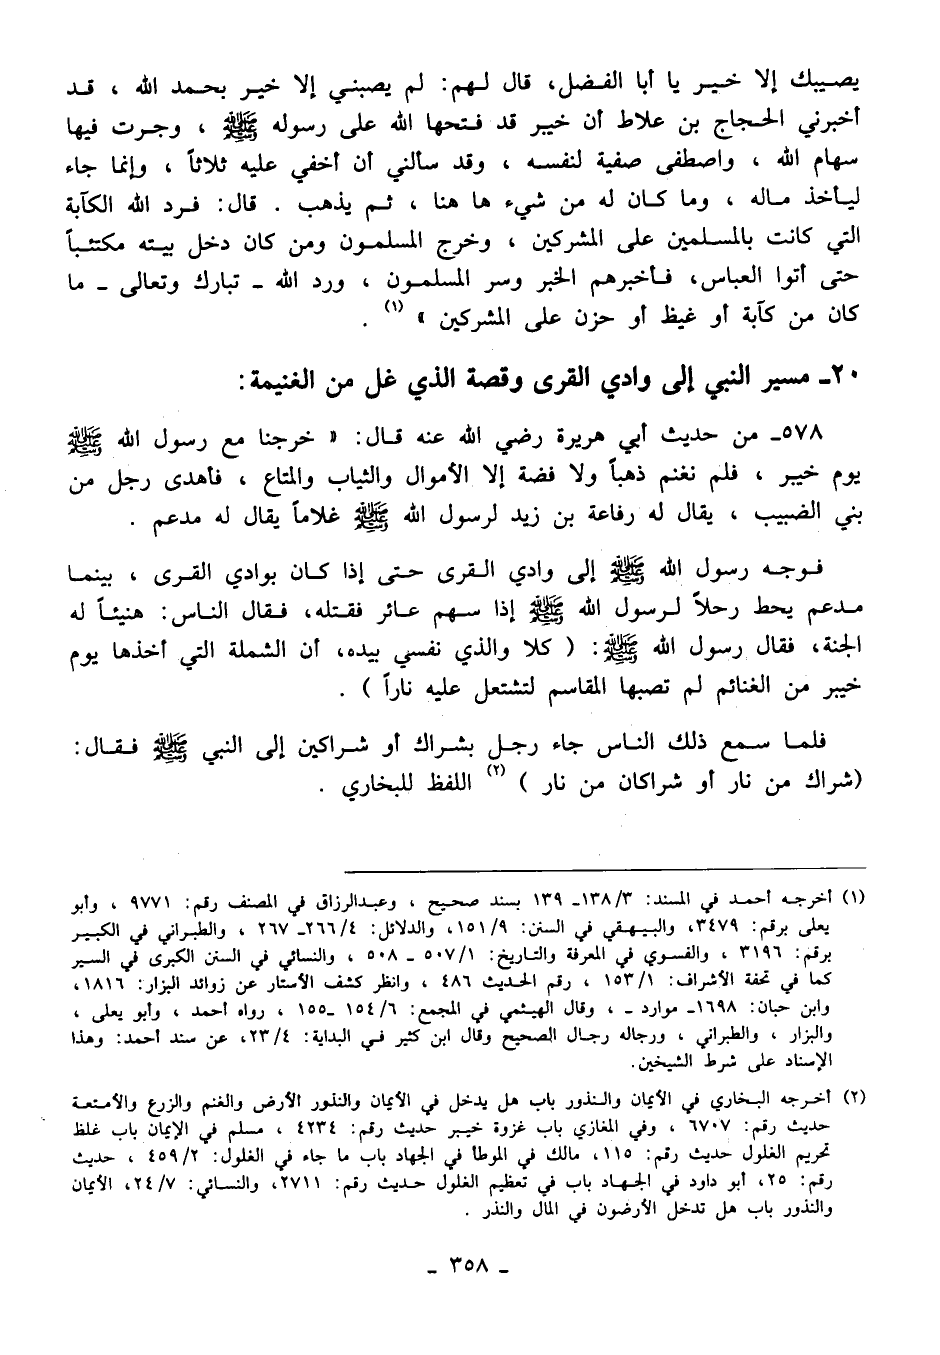 يصيبك إلا خير يا أبا الفضل، قال لهم: لم يصبني إلا خير بحمد الله ، قد
أخبرني الحجاج بن علاط أن خيبر قد فتحها الله على رسوله ﷺ ، وجرت فيها
سهام الله ، واصطفى صفية لنفسه ، وقد سألني أن أخفي عليه ثلاثاً ، وإنما جاء
ليأخذ ماله ، وما كان له من شيء ها هنا ، ثم يذهب . قال: فرد الله الكآبة
التي كانت بالمسلمين على المشركين ، وخرج المسلمون ومن كان دخل بيته مكتئباً
حتى أتوا العباس، فأخبرهم الخبر وسر المسلمون ، ورد الله ـ تبارك وتعالى ـ ما
كان من كآبة أو غيظ أو حزن على المشركين » (١) .
٢٠ـ مسير النبي إلى وادي القرى وقصة الذي غل من الغنيمة:
٥٧٨ـ من حديث أبي هريرة رضي الله عنه قال: « خرجنا مع رسول الله ﷺ
يوم خيبر ، فلم نغنم ذهباً ولا فضة إلا الأموال والثياب والمتاع ، فأهدى رجل من
بني الضبيب ، يقال له رفاعة بن زيد لرسول الله ﷺ غلاماً يقال له مدعم .
فوجه رسول الله ﷺ إلى وادي القرى حتى إذا كان بوادي القرى ، بينما
مدعم يحط رحلاً لرسول الله ﷺ إذا سهم عائر فقتله، فقال الناس: هنيئاً له
الجنة، فقال رسول الله ﷺ: ( كلا والذي نفسي بيده، أن الشملة التي أخذها يوم
خيبر من الغنائم لم تصبها المقاسم لتشتعل عليه ناراً ) .
فلما سمع ذلك الناس جاء رجل بشراك أو شراكين إلى النبي ﷺ فقال:
(شراك من نار أو شراكان من نار ) (٢) اللفظ للبخاري .
(١) أخرجه أحمد في المسند: ١٣٨/٣ـ ١٣٩ بسند صحيح ، وعبدالرزاق في المصنف رقم: ٩٧٧١ ، وأبو
يعلى برقم: ٣٤٧٩، والبيهقي في السنن: ١٥١/٩، والدلائل: ٢٦٦/٤ـ ٢٦٧ ، والطبراني في الكبير
برقم: ٣١٩٦ ، والفسوي في المعرفة والتاريخ: ٥٠٧/١ ـ ٥٠٨ ، والنسائي في السنن الكبرى في السير
كما في تحفة الأشراف: ١٥٣/١ ، رقم الحديث ٤٨٦ ، وانظر كشف الأستار عن زوائد البزار: ١٨١٦،
وابن حبان: ١٦٩٨ـ موارد ـ ، وقال الهيثمي في المجمع: ١٥٤/٦ ـ١٥٥ ، رواه أحمد ، وأبو يعلى ،
والبزار ، والطبراني ، ورجاله رجال الصحيح وقال ابن كثير في البداية: ٢٣/٤، عن سند أحمد: وهذا
الإسناد على شرط الشيخين.
(٢) أخرجه البخاري في الأيمان والنذور باب هل يدخل في الأيمان والنذور الأرض والغنم والزرع والأمتعة
حديث رقم: ٦٧٠٧ ، وفي المغازي باب غزوة خيبر حديث رقم: ٤٢٣٤ ، مسلم في الإيمان باب غلظ
تحريم الغلول حديث رقم: ١١٥، مالك في الموطأ في الجهاد باب ما جاء في الغلول: ٤٥٩/٢ ، حديث
رقم: ٢٥، أبو داود في الجهاد باب في تعظيم الغلول حديث رقم: ٢٧١١، والنسائي: ٢٤/٧، الأيمان
والنذور باب هل تدخل الأرضون في المال والنذر .
ـ ٣٥٨ ـ